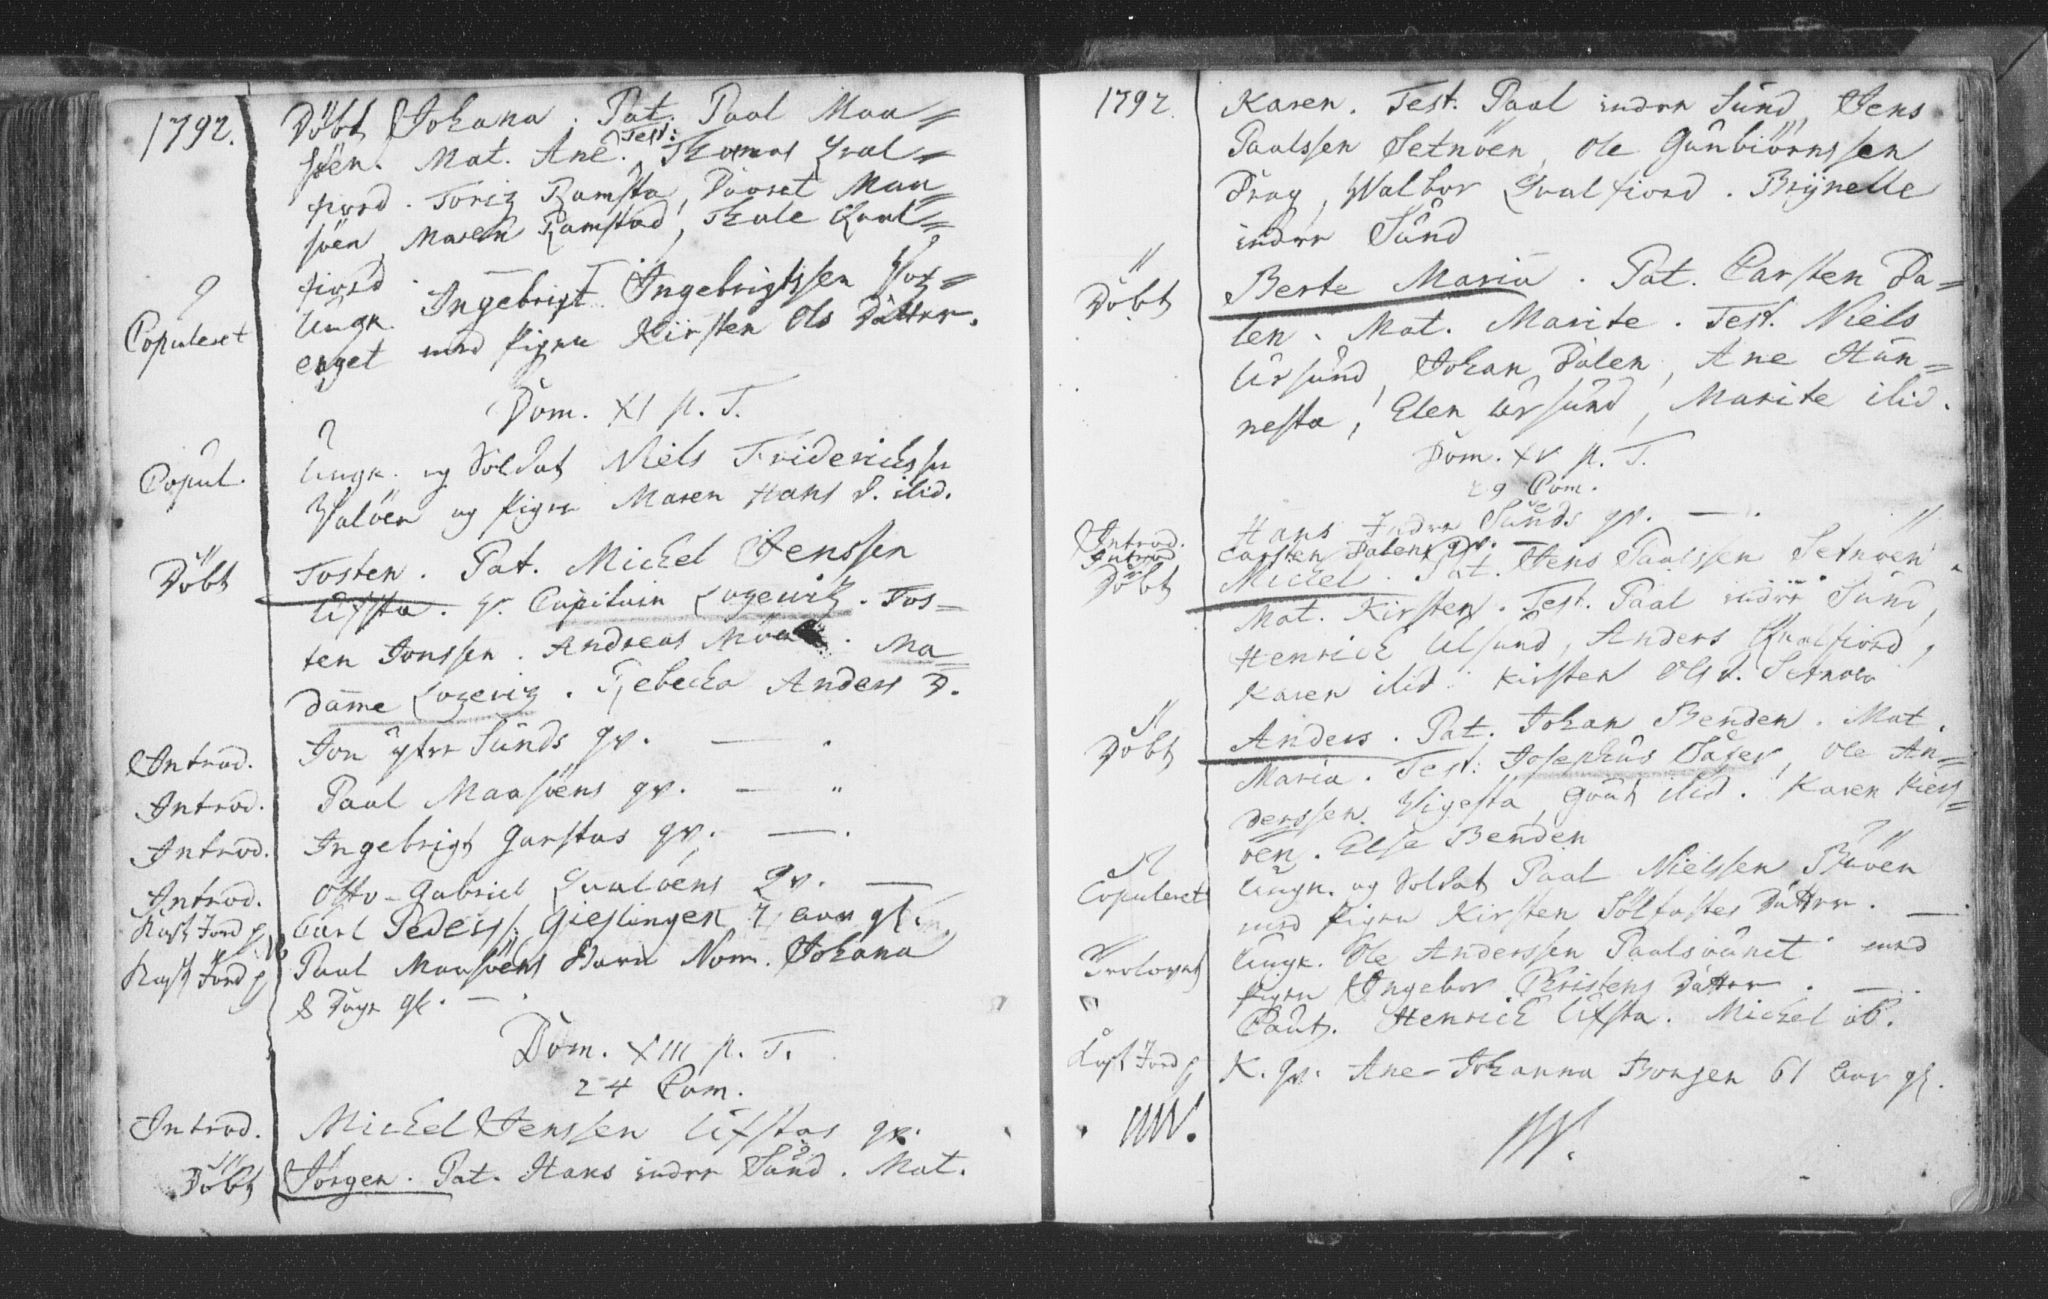 1792.
Döbt Johana. Pat. Paal Maa=
söen. Mat. Ane. Test: Thomas Qval=
fiord. Toriz Ramsta, Dorret Maa=
söen, Maren Ramstad, Thale Qval=
fiord.
Copuleret Ungk. Ingebrigt Ingebrigtssen Hox=
enget med Pigen Kirsten Ols Datter.
Dom. XI p. T.
Copul. Ungk. og Soldat Niels Friderichssen
Valöen og Pigen Maren Hans D. ibid.
Döbt Tosten. Pat. Michel Jenssen
Ufsta. T. Capitain Lozewitz. Tos=
ten Jonssen. Andreas. Ma=
dame Lozewiz. Rebecka Anders D.
Introd. Jon ytre Sunds qv. —.
Introd. Paal Maasöens qv. — "
Introd. Ingebrigt Garstas qv. —.
Introd. Otto-Gabriel Qvalöens Qv. —
Kast Jord p. Carl Peders: Gieslingen 7 Aar gl.
Kast Jord p. Paal Maasöens Barn Nom. Johana
8 Dage gl. —.
Dom. XIII p. T.
24 Com.
Introd. Michel Jenssen Ufstas qv.
Döbt Jörgen. Pat. Hans indre Sund. Mat.
1792.
Karen. Test. Paal indre Sund, Jens
Paalssen Setnöen, Ole Gunbiörnssen
Drag, Walbor Qvalfiord. Brynelle
indre Sund
Döbt Berte Maria. Pat. Carsten Da=
len. Mat. Marite. Test. Niels
Ursund, Johan Dalen, Ane Hun=
nesta, Elen Ursund, Marite ibid.
Dom. XV p. T.
29 Com.
Introd. Hans Indre Sunds qv. —.
Introd Carsten Dalens qv. —
Döbt Michel. Pat. Jens Paalssen Setnöen.
Mat. Kirsten. Test. Paal indre Sund,
Henrich Ulsund, Anders Qvalfiord,
Karen ibid. Kirsten Ols D. Setnöen
Döbt Anders. Pat. Johan Benden. Mat.
Maria. Test: Josephus Jäger, Ole An=
derssen Vigesta, ibid. Karen Kiers=
öen. Else Benden
Copuleret Ungk. og Soldat Paal Nielssen
med Pigen Kirsten Solfastes Datter. —.
Trolovet Ungk. Ole Anderssen Paalsvånet med
Pigen Ingebor Christens Datter. —.
Caut. Henrich Ufsta. Michel ib.
Kast Jord p K. qv. Ane-Johanna Borgen 61 Aar gl.